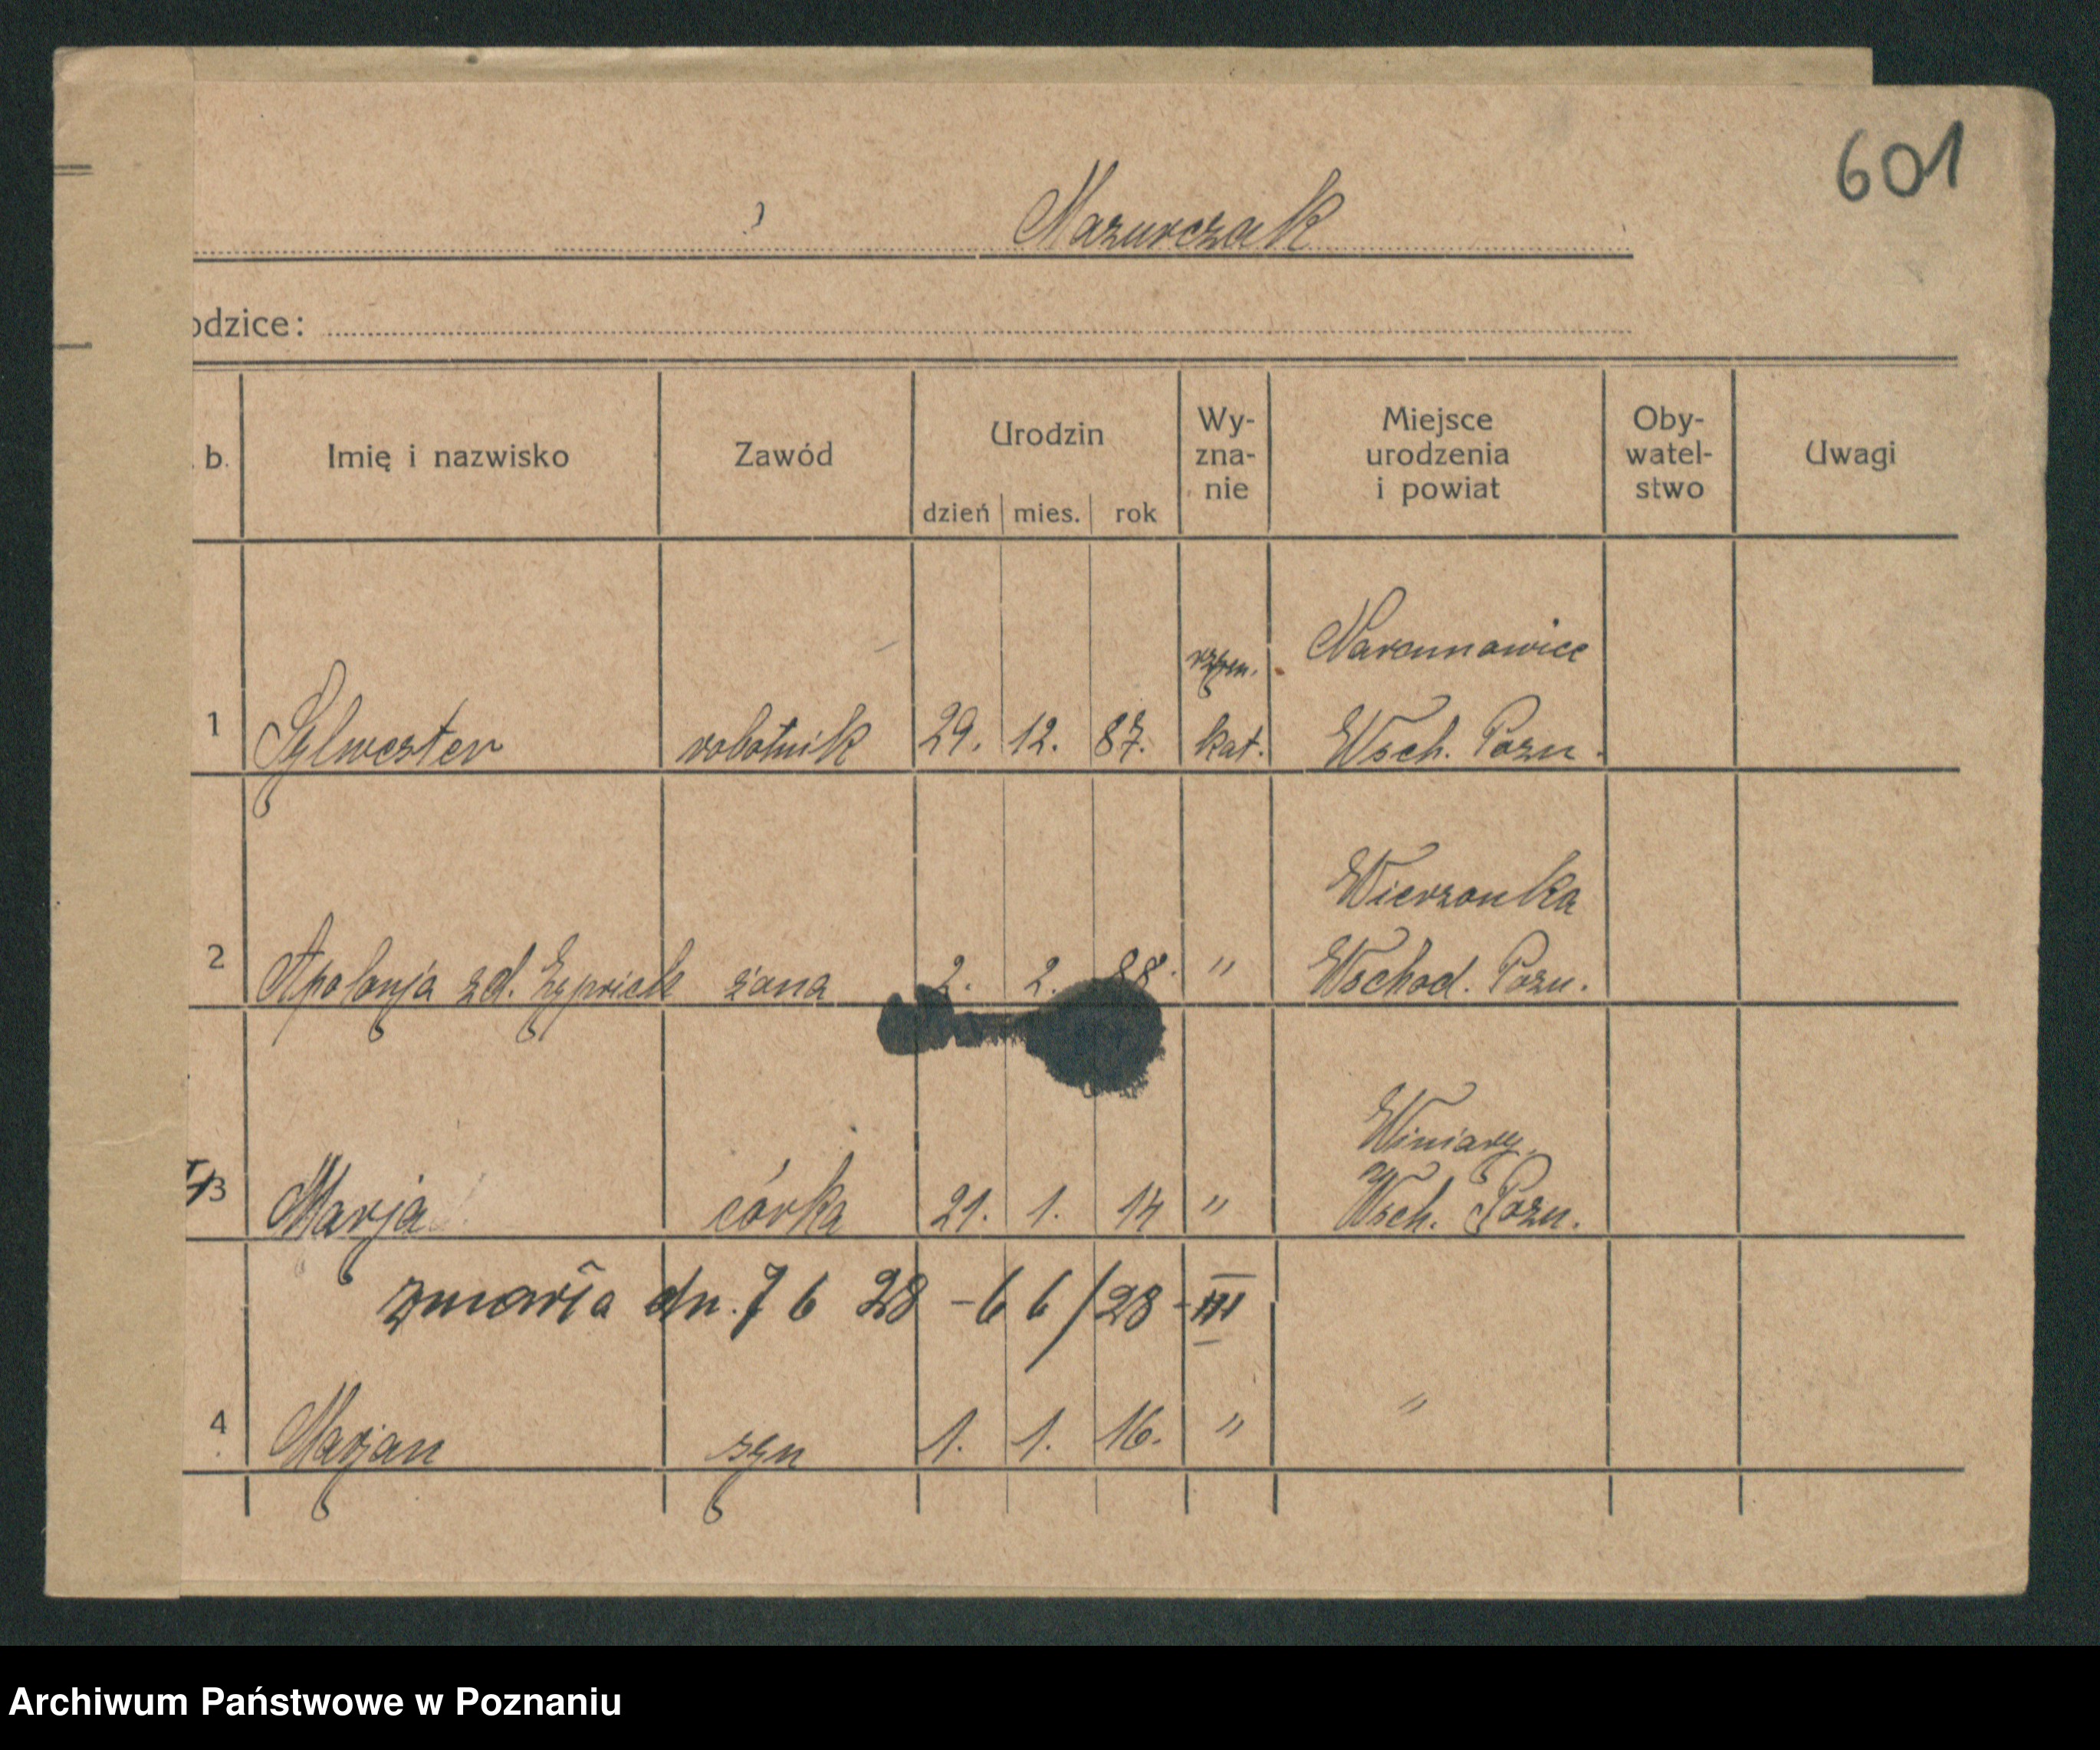 601
Mazurczak
odzice:
b. Imię i nazwisko Zawód Urodzin dzień mies. rok Wy-zna-nie Miejsce urodzenia i powiat Oby-watel-stwo Uwagi
rzym. Naramowice
1 Sylwester robotnik 29. 12. 87. kat. Wsch. Pozn.
Wierzonka
2 Apolonja zd. żona 2. 2. 88. " Wschod. Pozn.
Winiary
3 Marja córka 21. 1. 14 " Wsch. Pozn.
zmarła dn. 7 6 28 - 6 6/28 - III
4 Marjan syn 1. 1. 16. " "
Archiwum Państwowe w Poznaniu